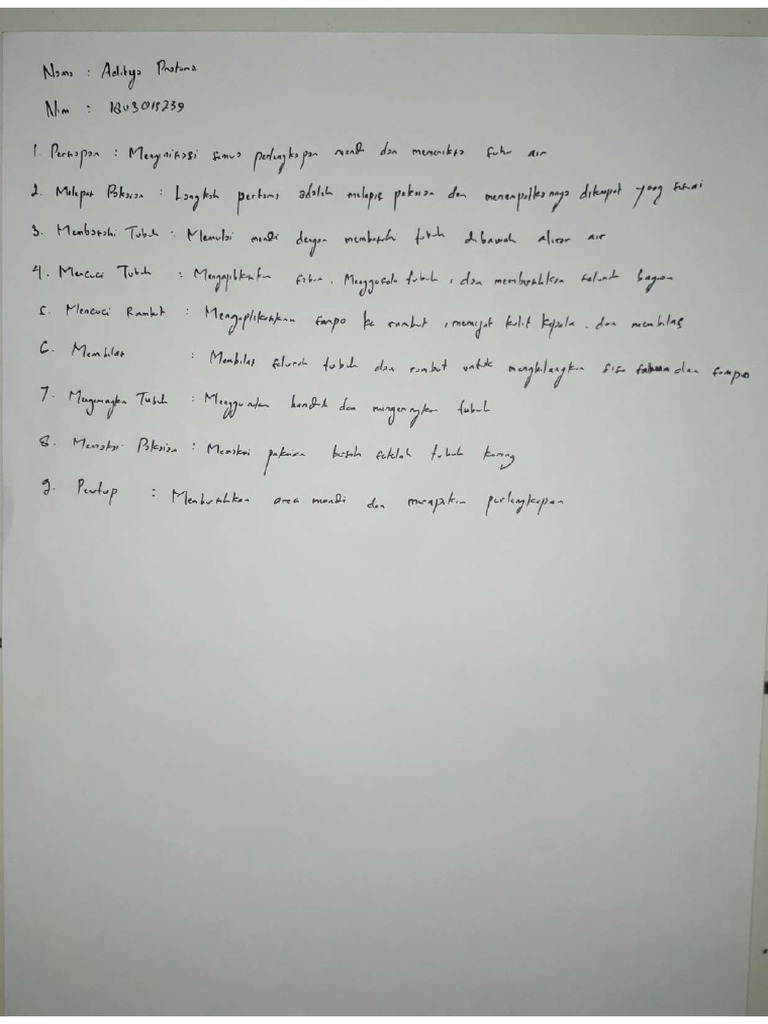 Nama : Aditya Pratama
Nim : 1803015239
1. Persiapan : Menyiapkan semua perlengkapan mandi dan memeriksa suhu air
2. Melepas Pakaian : Langkah pertama adalah melepas pakaian dan menempatkannya ditempat yang sesuai
3. Membasahi Tubuh : Memulai mandi dengan membasahi tubuh dibawah aliran air
4. Mencuci Tubuh : Mengaplikasikan sabun, Menggosok tubuh, dan membersihkan seluruh bagian
5. Mencuci Rambut : Mengaplikasikan sampo ke rambut, memijat kulit kepala, dan membilas
6. Membilas : Membilas seluruh tubuh dan rambut untuk menghilangkan sisa sabun dan sampo
7. Mengeringkan Tubuh : Menggunakan handuk dan mengeringkan tubuh
8. Memakai Pakaian : Memakai pakaian bersih setelah tubuh kering
9. Penutup : Membersihkan area mandi dan merapikan perlengkapan